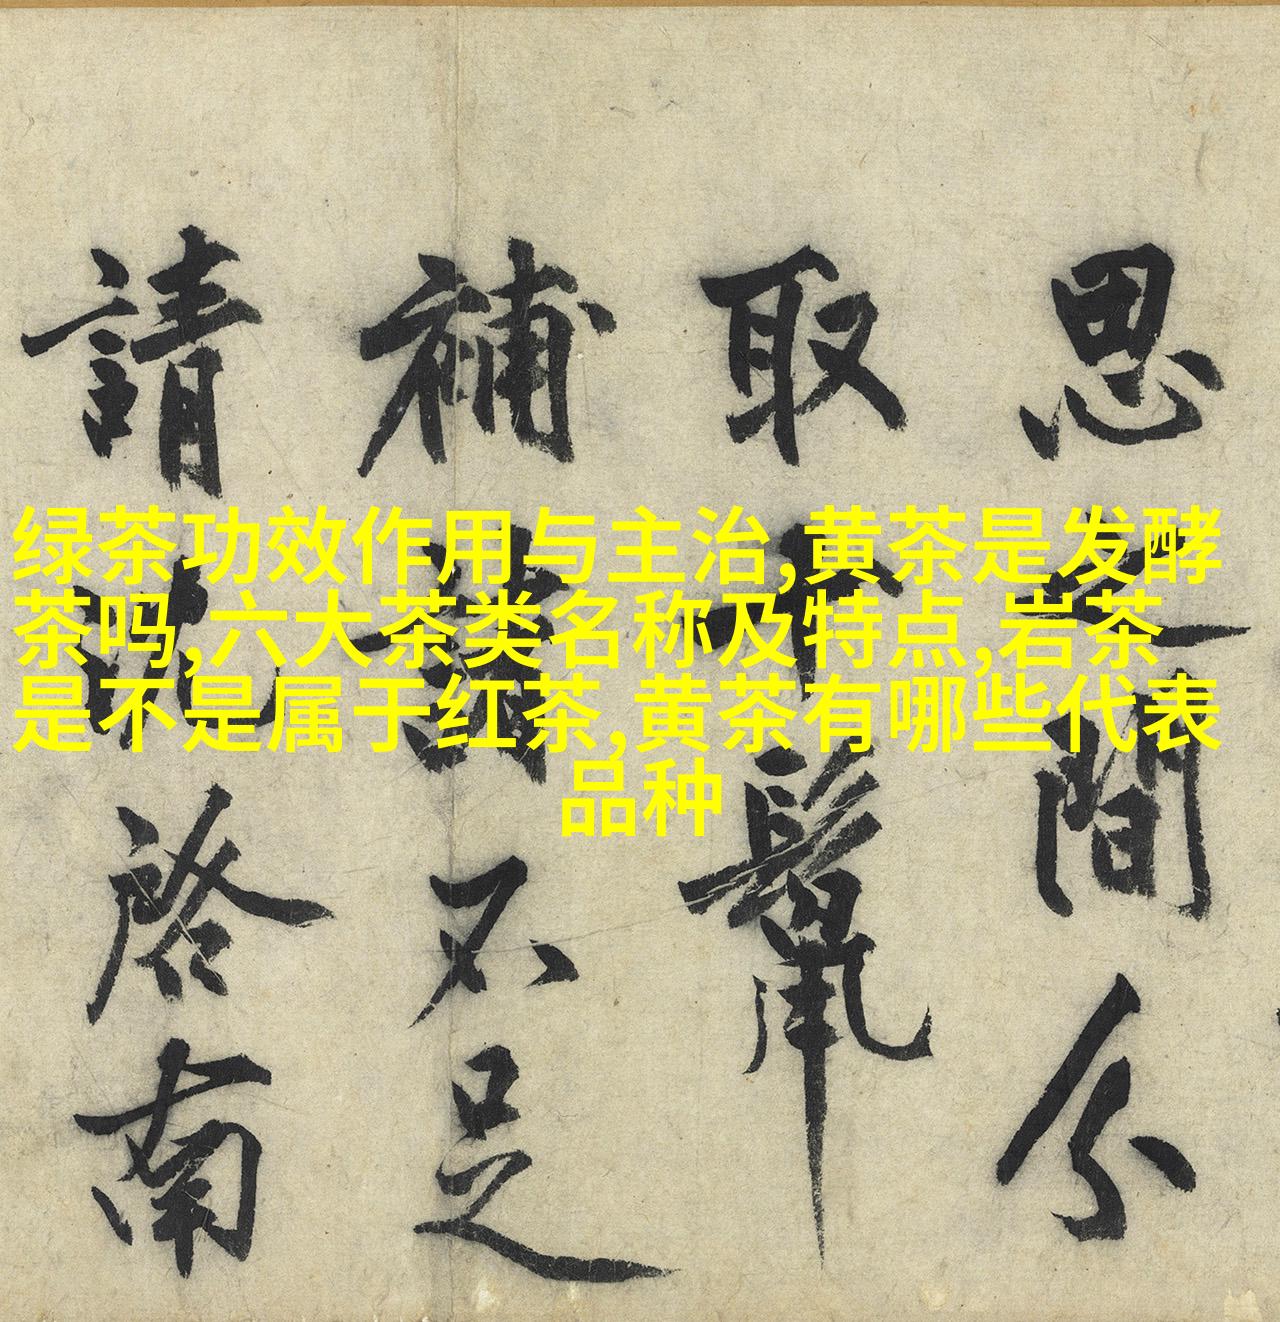 绿茶功效作用与主治,黄茶是发酵
茶吗,六大茶类名称及特点,岩茶
是不是属于红茶,黄茶有哪些代表
品种
思之間分
取十
補 不足
請 啓南